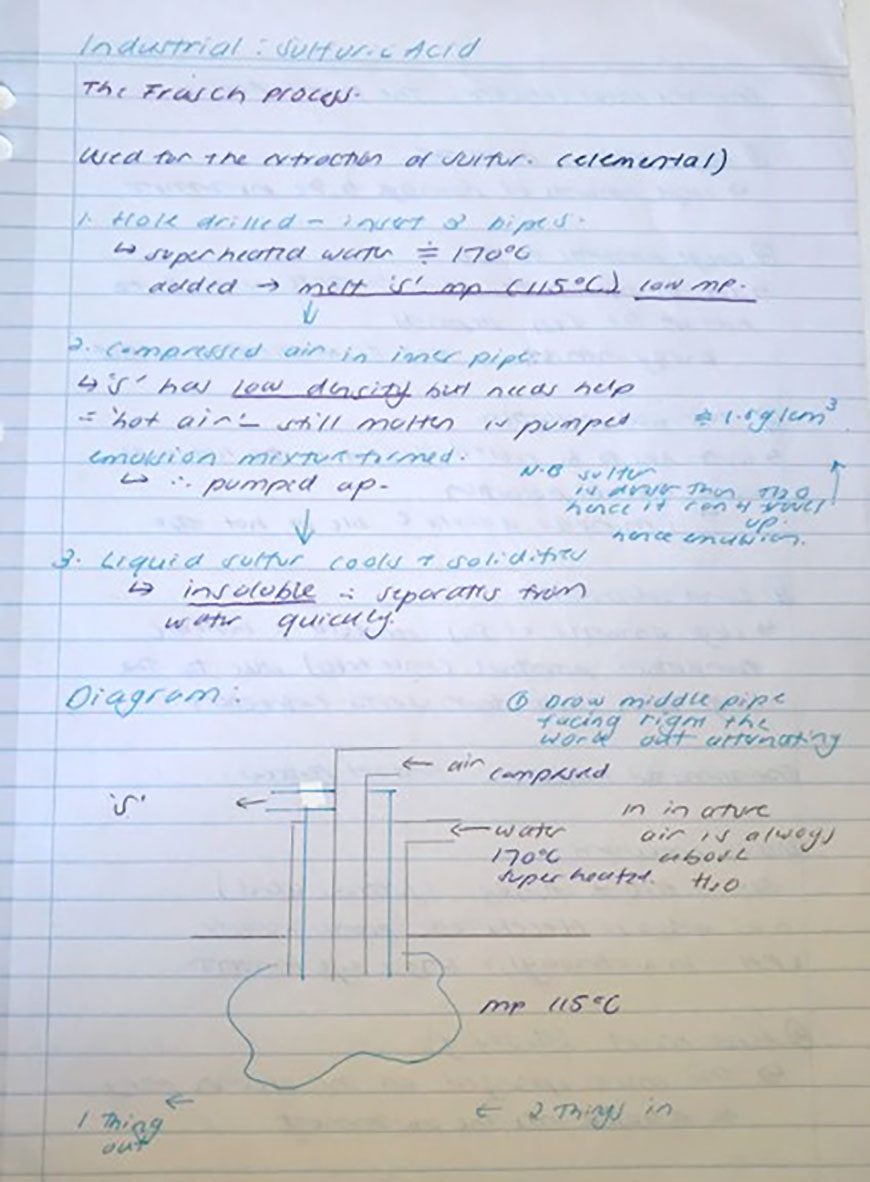 Industrial: Sulfuric Acid
The Frasch process.
Used for the extraction of sulfur. (elemental)
1. Hole drilled - insert 3 pipes.
↳ superheated water ≑ 170°C
added → melt 'S' mp (115°C) low mp.
↓
2. Compressed air in inner pipe
↳ 'S' has low density but needs help
= 'hot air' - still molten is pumped ≑ 1.8g/cm³
emulsion mixture formed.
↳ ∴ pumped up.
N.B sulfur
is denser than H₂O
hence it can't travel
up.
hence emulsion.
↓
3. Liquid sulfur cools + solidifies
↳ insoluble ∴ separates from
water quickly.
Diagram:
① Draw middle pipe
facing right the
work out alternating
← air compressed
'S' ←
← water
170°C
superheated.
In nature
air is always
above
H₂O
mp 115°C
1 Thing ←
out
← 2 Things in